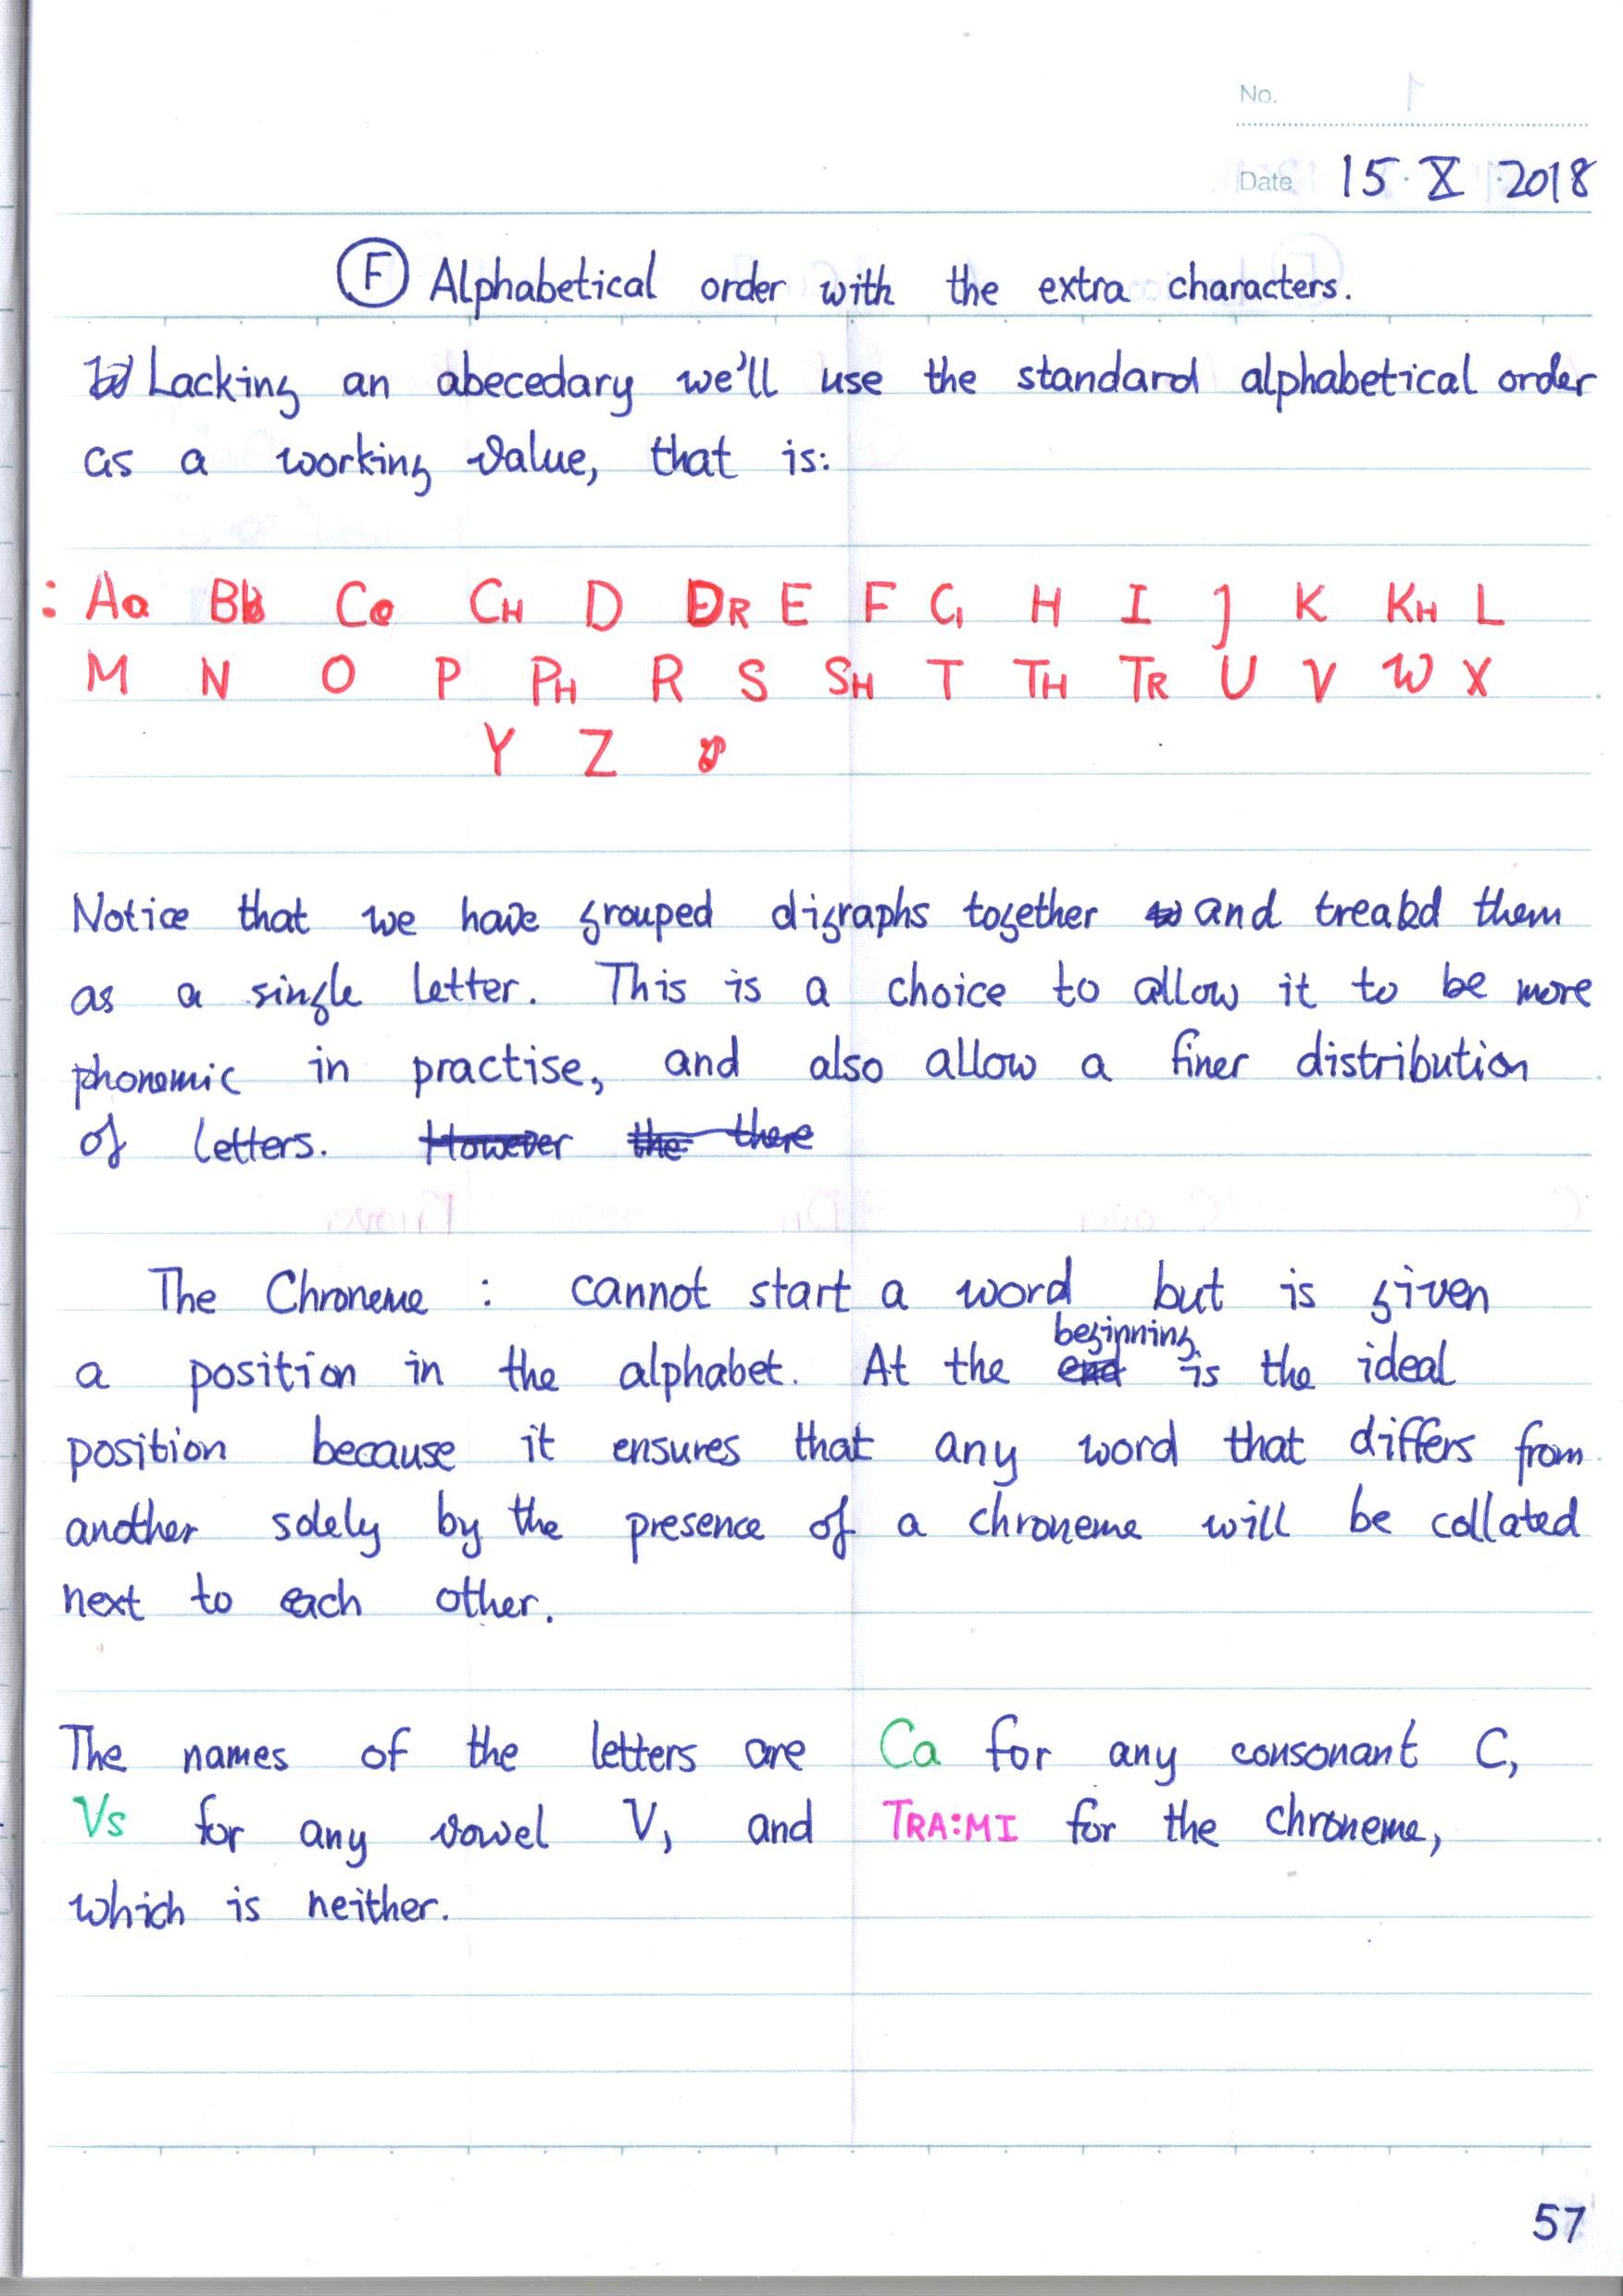 No.
Date 15·X·2018
Ⓕ Alphabetical order with the extra characters.
Lacking an abecedary we'll use the standard alphabetical order
as a working value, that is:
: Aa Bb Cc CH D DR E F G H I J K KH L
M N O P PH R S SH T TH TR U V W X
Y Z
Notice that we have grouped digraphs together and treated them
as a single letter. This is a choice to allow it to be more
phonemic in practise, and also allow a finer distribution
of letters. However the there
The Chroneme : cannot start a word but is given
beginning
a position in the alphabet. At the end is the ideal
position because it ensures that any word that differs from
another solely by the presence of a chroneme will be collated
next to each other.
The names of the letters are Ca for any consonant C,
Vs for any vowel V, and TRA:MI for the chroneme,
which is neither.
57